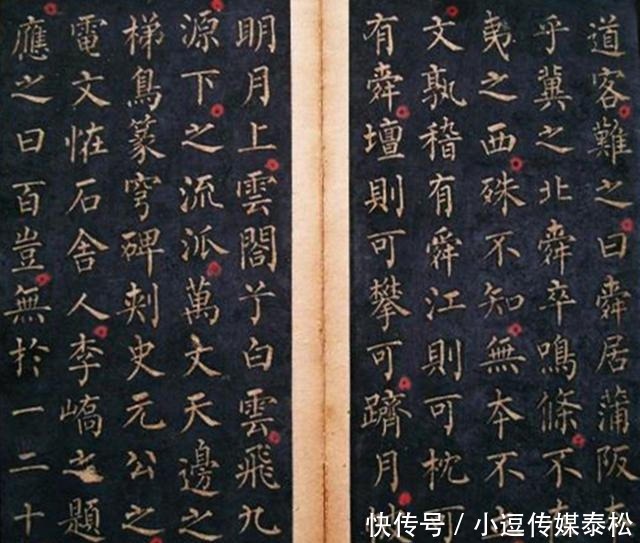 道客難之曰舜居蒲阪
乎冀之北舜卒鳴條不
夷之西殊不知無本不
文孰稽有舜江則可枕
有舜壇則可攀可躋月
明月上雲閣兮白雲飛九
源下之流派萬丈天邊之
梯鳥篆穹碑刾史元公之
電文恠石舍人李嶠之題
應之曰百豈無於一二十
快传号 / 小逗传媒泰松